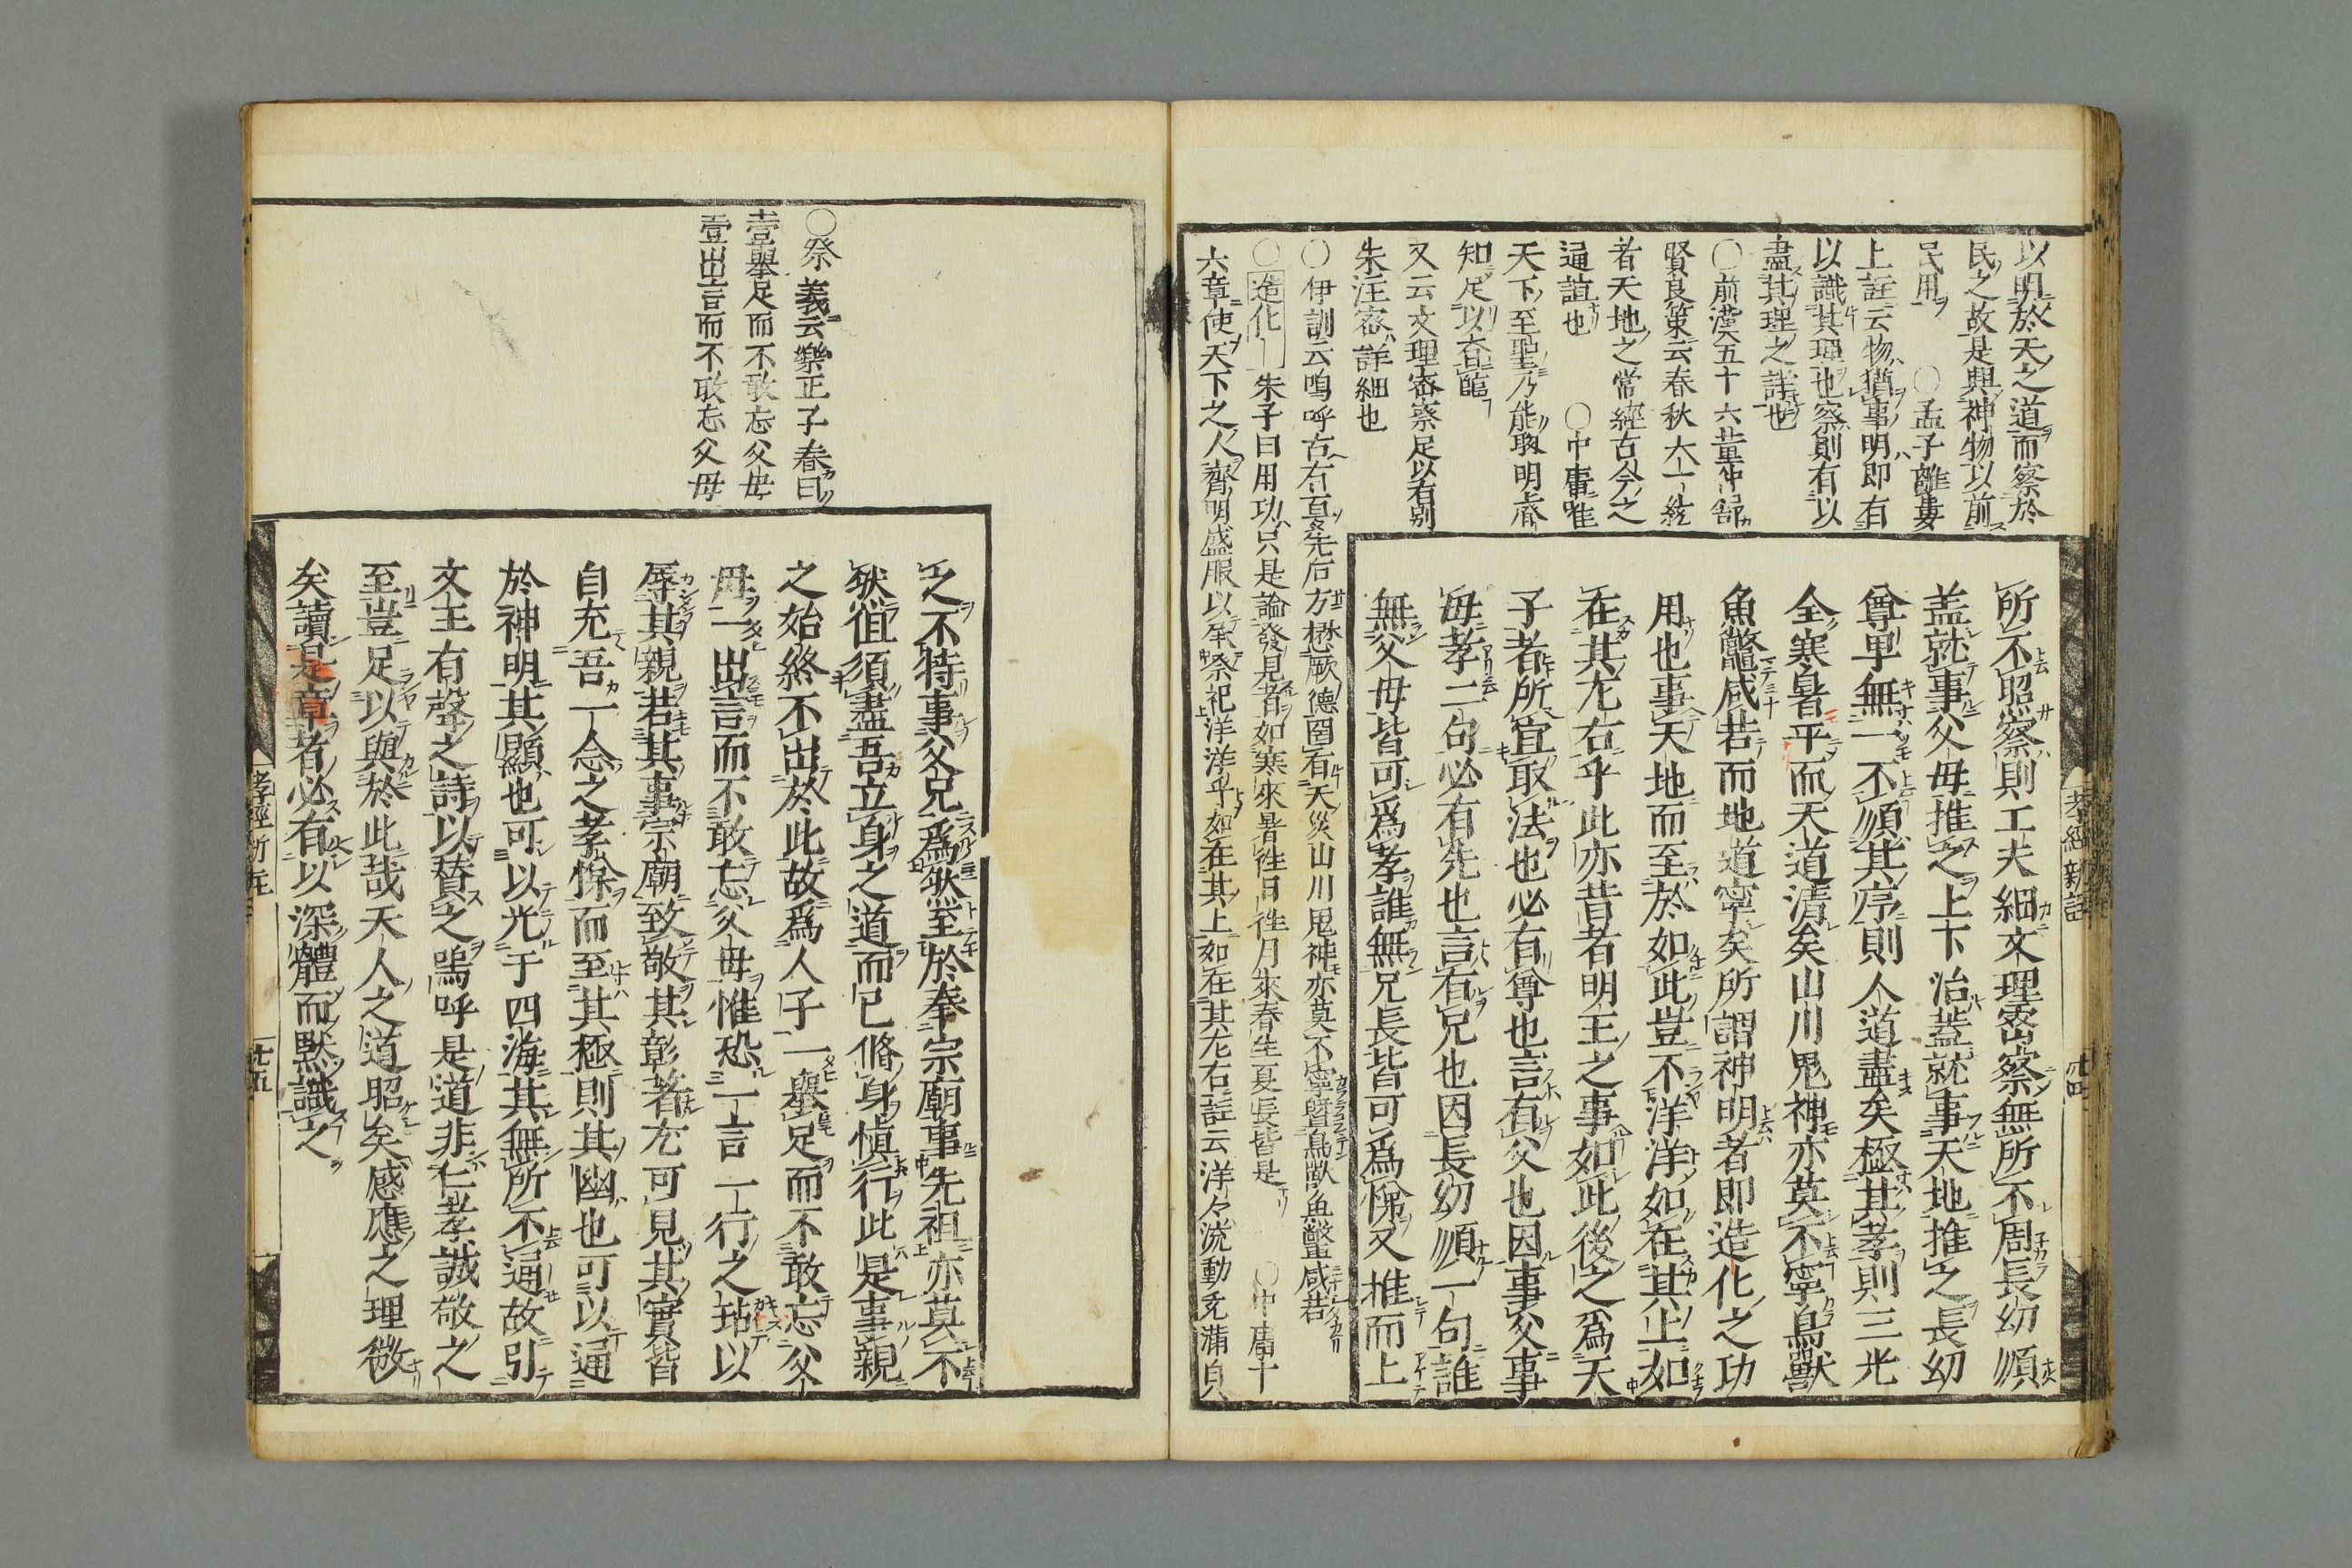 以明於天之道而察於
民之故是興神物以前
民用 ○孟子離婁
上註云物猶事明即有
以識其理也察則有以
盡其理之詳也
○前漢五十六董仲舒
賢良策云春秋大一統
者天地之常經古今之
通誼也 ○中庸唯
天下至聖乃能聰明睿
知足以有臨
又云文理密察足以有別
朱注密詳細也
○伊訓云嗚呼古有夏先后方懋厥德罔有天災山川鬼神亦莫不寧曁鳥獸魚鼈咸若
○造化 朱子曰用功只是論發見者如寒來暑徃日徃月來春生夏長皆是 ○中庸十
六章使天下之人齊明盛服以承祭祀洋洋乎如在其上如在其左右註云洋々流動充滿
所不照察則工夫細文理密察無所不周長幼順
盖就事父母推之上下治葢就事天地推之長幼
尊卑無一不順其序則人道盡矣極其孝則三光
全寒暑平而天道清矣山川鬼神亦莫不寧鳥獸
魚鼈咸若而地道寧矣所謂神明者即造化之功
用也事天地而至於如此豈不洋洋如在其上如
在其左右乎此亦昔者明王之事如此後之爲天
子者所宜取法也必有尊也言有父也因事父事
母孝二句必有先也言有兄也因長幼順一句誰
無父母皆可爲孝誰無兄長皆可爲悌又推而上
孝經新註 廿四
○祭義云樂正子春曰
壹舉足而不敢忘父母
壹出言而不敢忘父母
之不特事父兄爲然至於奉宗廟事先祖亦莫不
然徃須盡吾立身之道而已脩身愼行此是事親
之始終不出於此故爲人子一舉足而不敢忘父
母一出言而不敢忘父母惟恐一言一行之玷以
辱其親若其事宗廟致敬其彰著尤可見其實皆
自充吾一念之孝悌而至其極則其幽也可以通
於神明其顯也可以光于四海其無所不通故引
文王有聲之詩以賛之嗚呼是道非仁孝誠敬之
至豈足以與於此哉天人之道昭矣感應之理微
矣讀是章者必有以深體而默識之
孝經新註 廿五